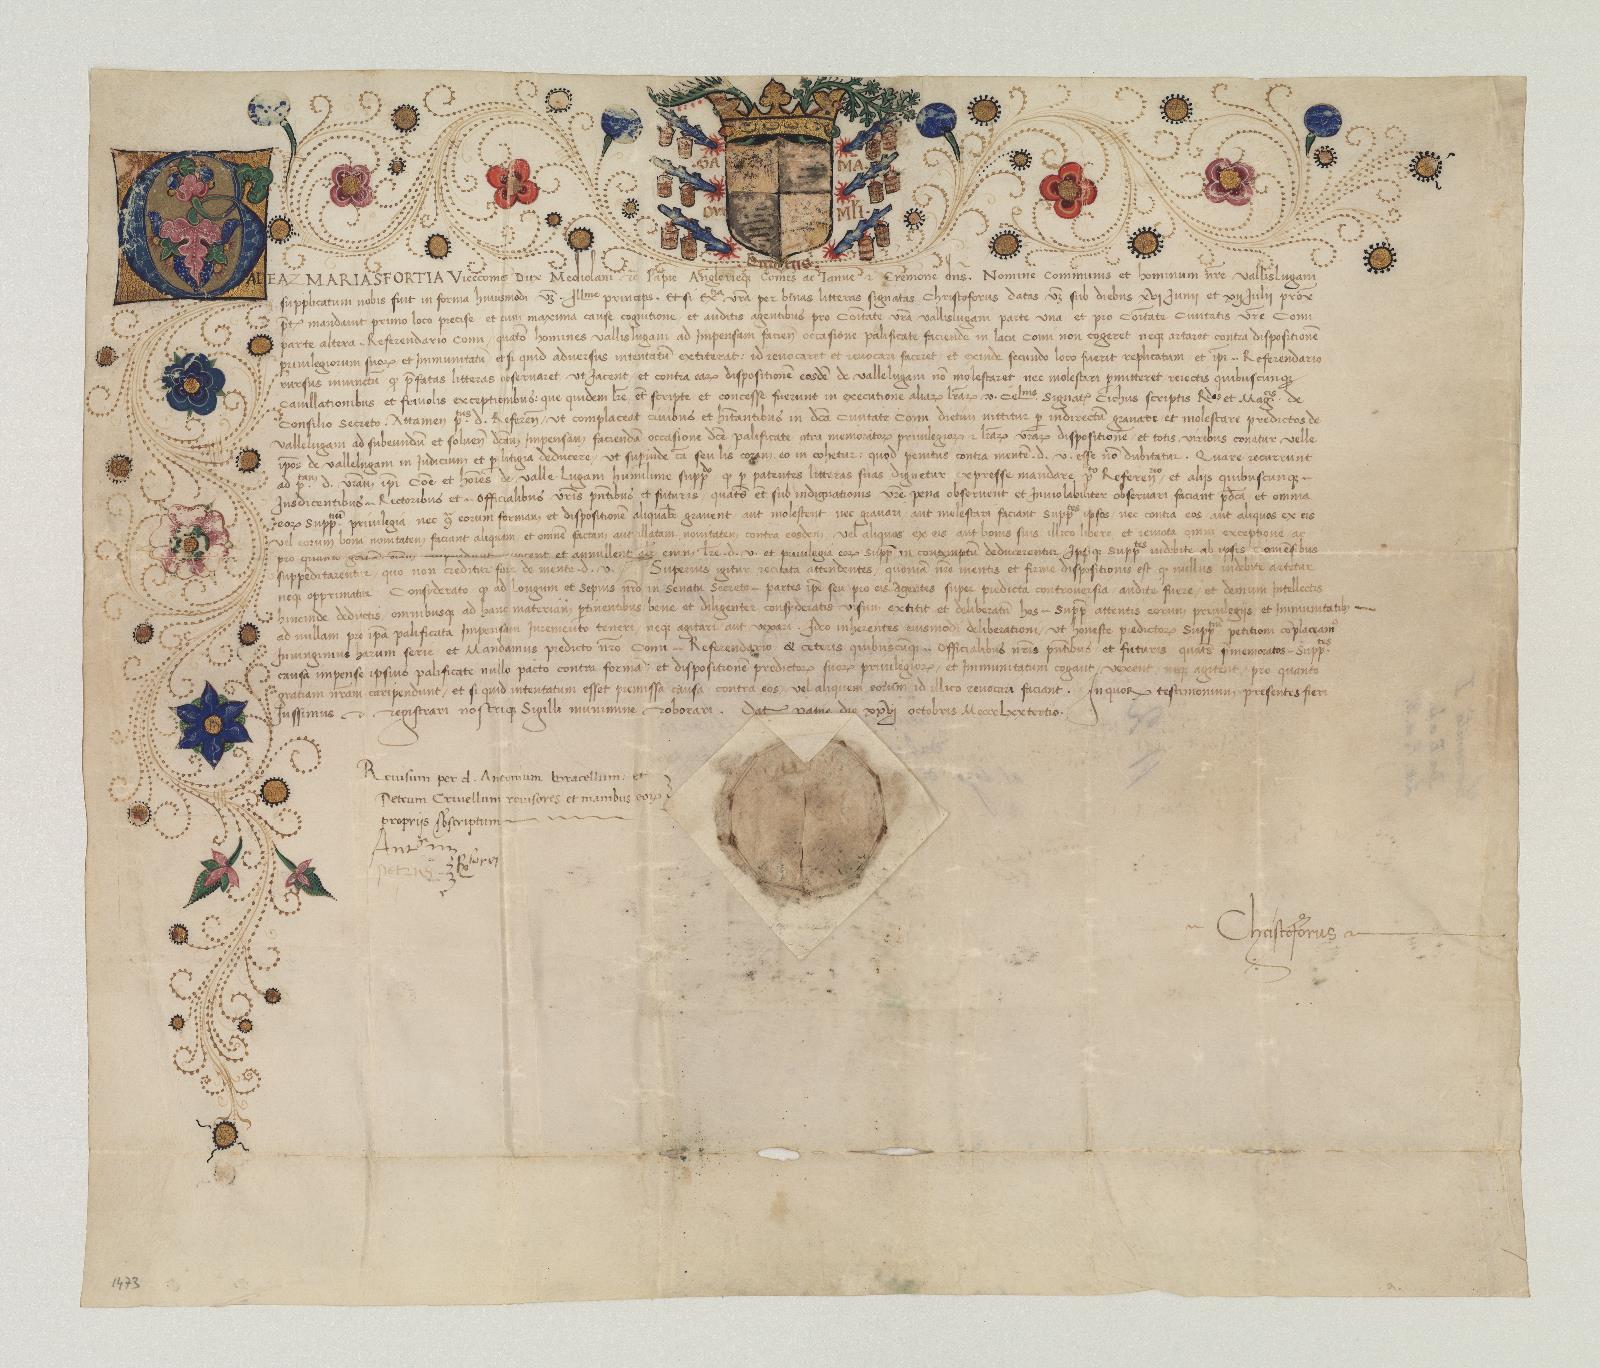 GA MA
DVX MLI
GALEAZ MARIA SFORTIA Vicecomes Dux Mediolani &c Papie Anglerieq₃ Comes ac Ianue & Cremone dns. Nomine Communis et hominum nre vallislugani
supplicatum nobis fuit in forma huiusmodi vz. Illme princeps. Et si Extia vra per binas litteras signatas Christoforus datas vz sub diebus xvi Junii et xii Julii prox
prt mandavit primo loco precise et cum maxima cause cognitione, et auditis agentibus pro Coitate vra vallislugani parte una et pro Coitate Civitatis vre Comi
parte altera Referendario Comi, quatos homines vallislugani ad Impensam facien occasione palificate faciende in lacu Comi non cogeret neq₃ artaret contra dispositione
privilegiorum suorꝝ et Immunitatu et si quid adversus intentatu extiterat: id revocaret et revocari faceret, et exinde secundo loco fuerit replicatum et ipi Referendario
rursus iniunctu q̃ pfatas litteras observaret, ut Iacent, et contra earꝝ dispositione eosde de vallelugani no molestaret nec molestari pmitteret reiectis quibuscunq₃
Cavillationibus et frivolis exceptionibus: que quidem lre, et scripte et concesse fuerunt in executione aliarꝝ lrarꝝ v. Celmis Signatꝝ Cichus scriptis Rdo et Magcis de
Consilio Secreto. Attamen ptus d. Referen, ut complaceat civibus et hitantibus in dca Civitate Comi dietim nititur p indirectu gravare et molestare predictos de
vallelugani ad subeundu et solven dcam Impensam faciendam occasione dce palificate ctra memoratorꝝ privilegiorꝝ & lrarꝝ vrarꝝ dispositione, et totis viribus conatur velle
ipos de vallelugani in Iudicium et p litigia deducere, ut supinde ca seu lis coram eo incohetur: quod penitus contra mente d. v. esse no dubitatur. Quare recurrunt
ad ptam d. vram ipi Coe et hoies de valle Lugani humilime suppco q̃ p patentes litteras suas dignetur expresse mandare pto Referenrio et alijs quibuscunq₃
Iusdicentibus Rectoribus et Officialibus vris pntibus et futuris, quats et sub indignationis vre pena observent et Inviolabiliter observari faciant pdca et omnia
eorꝝ Supptium privilegia, nec q eorum formam et dispositione aliqualr gravent aut molestent nec gravari aut molestari faciant Supptes ipsos, nec contra eos aut aliquos ex eis
vel eorum bona novitatem faciant aliquam et omne factam aut illatam novitatem contra eosdem, vel aliquos ex eis aut bonis suis illico libere et remota omni exceptione ac
et annullent enim lre d. v. et privilegia eorꝝ Supp in contemptu deducerentur Ipsiq₃ Supptes indebite ab ipsis Comensibus
suppeditarentur, quo non creditur fore de mente d. v. Superius igitur recitata attendentes, quoniam nre mentis et firme dispositionis est q̃ nullus indebite artetur
neq₃ opprimatur. Consyderato q̃ ad longum et sepius nro in Senatu Secreto partes ipse seu pro eis agentes super predicta controversia audite fuere, et demum Intellectis
hincinde deductis, omnibusq₃ ad hanc materiam ptinentibus bene et diligenter consyderatis visum extitit et deliberatu hos Supp attentis eorum privilegijs et Immunitatib
ad nullam pro ipa palificata Impensam Incremento teneri, neq₃ agitari aut vexari. Ideo inherentes eiusmodi deliberationi, ut honeste predictorꝝ Supptiu petitioni coplaceam
Iniungimus harum serie et Mandamus predicto nro Comi Referendario & ceteris quibuscunq₃ Officialibus nris pntibus et futuris quats memoratos Supptes
causa impense ipsius palificate nullo pacto contra forma et dispositione predictorꝝ suorꝝ privilegiorꝝ, et Immunitatum cogant, vexent, neq₃ agitent, pro quanto
gratiam nram caripendunt, et si quid intentatum esset premissa causa contra eos, vel aliquem eorum id illico revocari faciant. In quorꝝ testimonium presentes fieri
Iussimus & registrari nostriq₃ Sigilli munimine roborari. Dat die xxvi octobris Mcccclxxtertio.
Revisum per d. Antonium bracellum et
Petrum Crivellum revisores et manibus eorꝝ
proprijs sbscriptum
Antonius
Petrus
Christoforus
1473